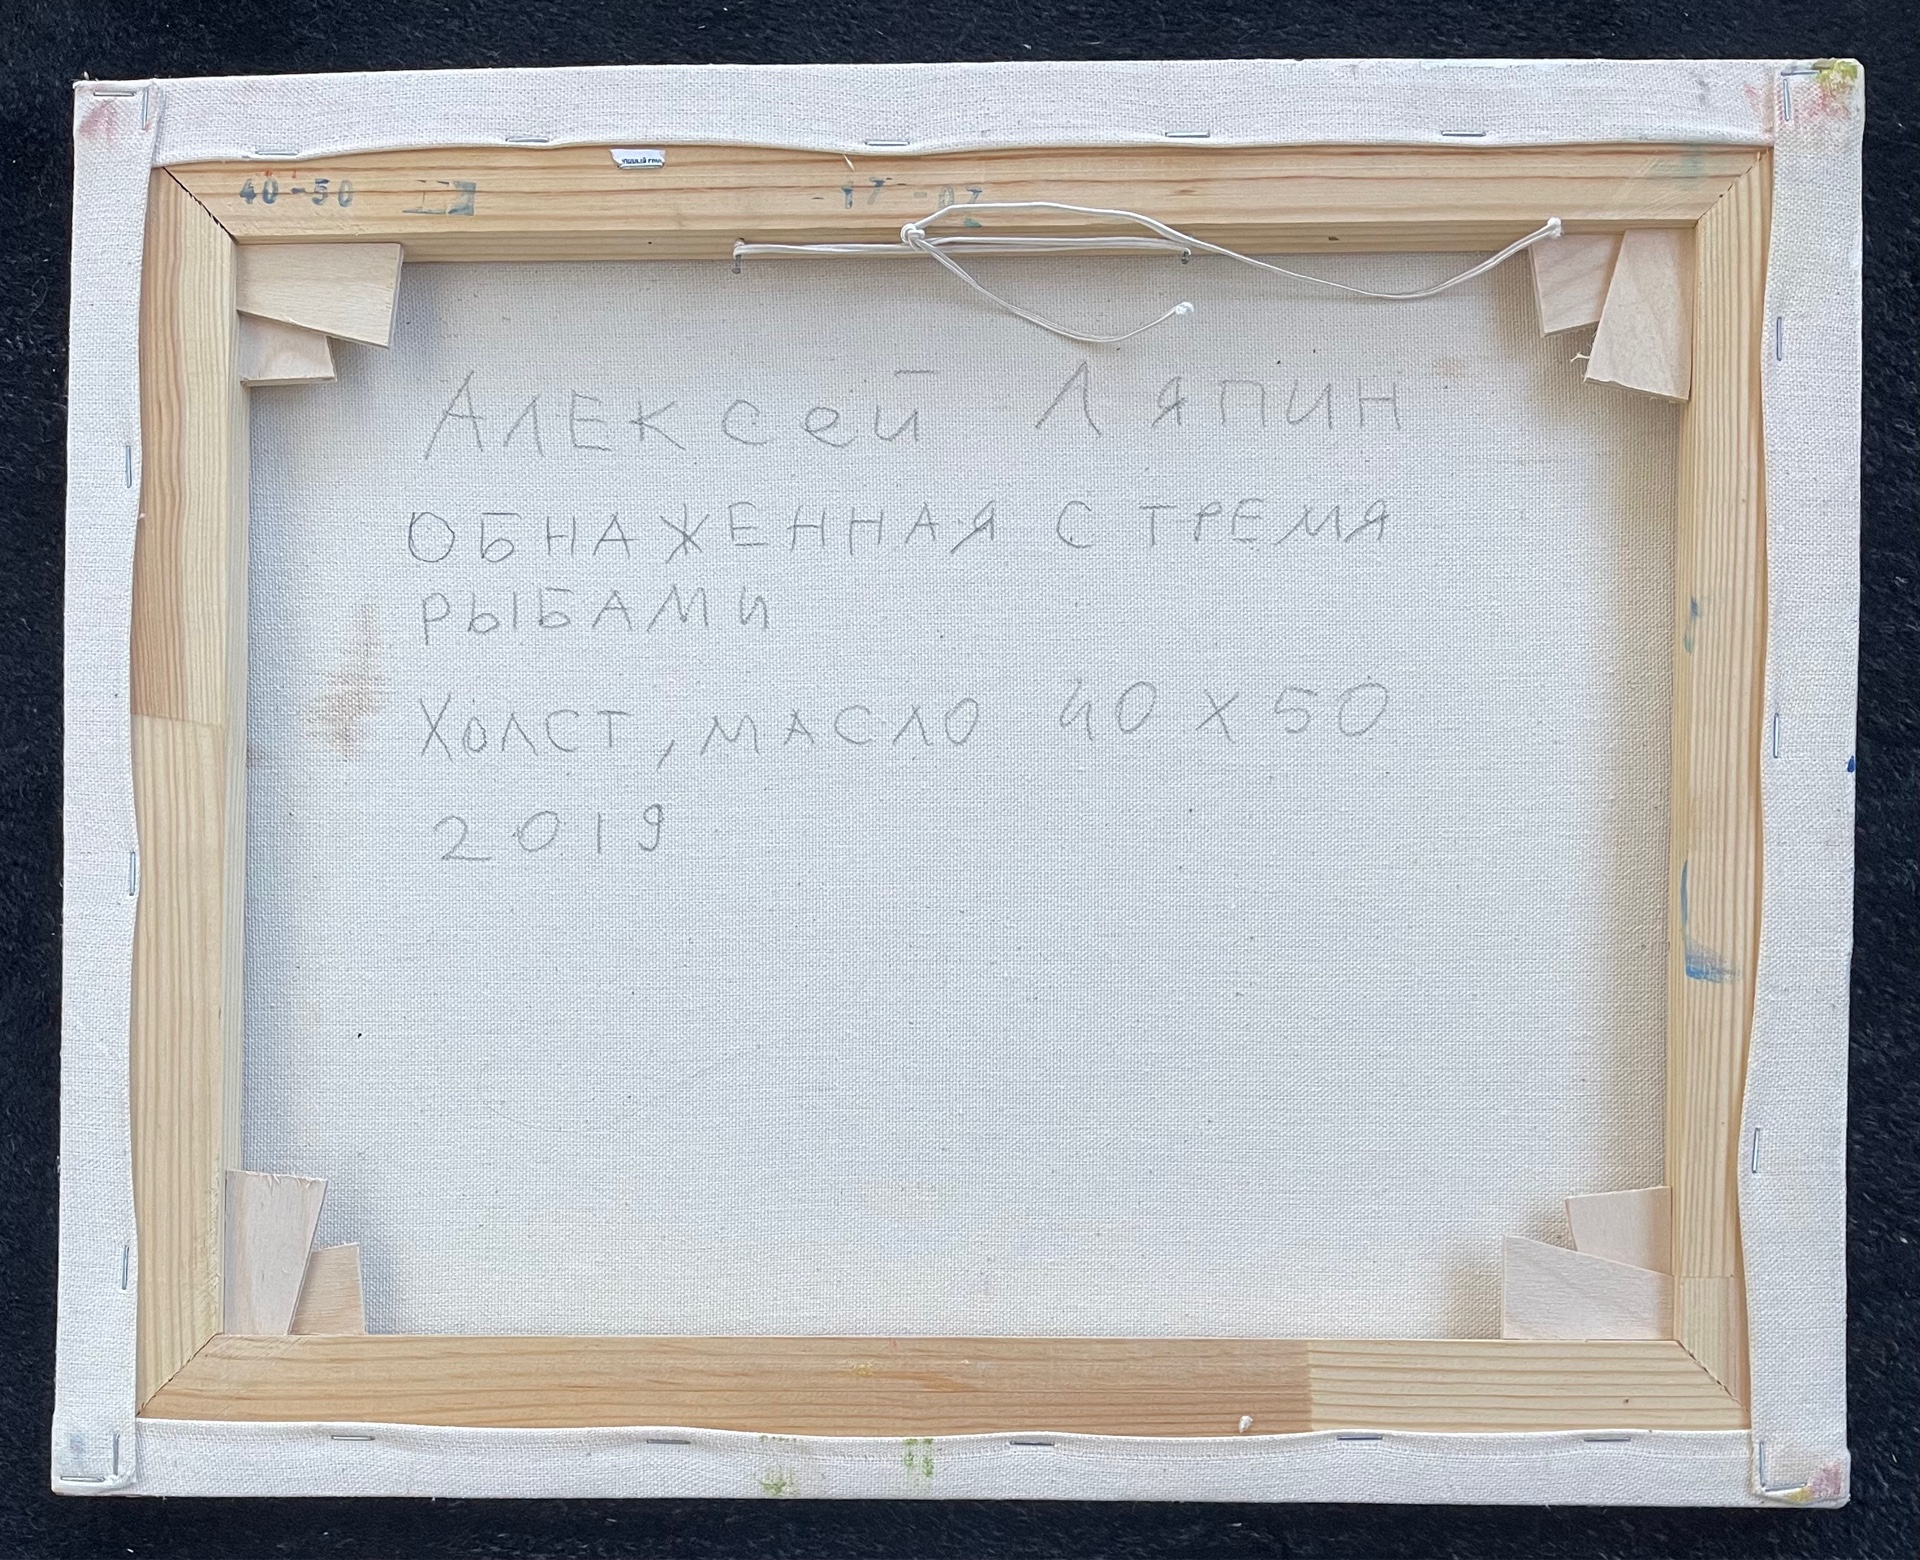 40-50
-17-07
Алексей Ляпин
ОБНАЖЕННАЯ С ТРЕМЯ
РЫБАМИ
Холст, МАСЛО 40 X 50
2019